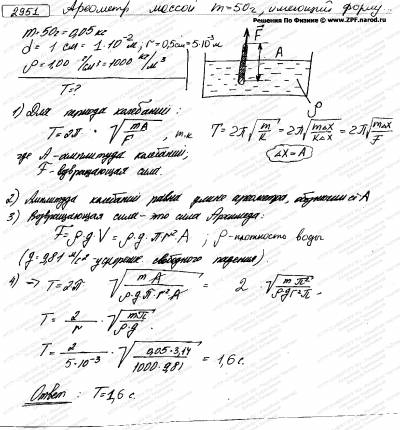 2951 Ареометр массой m=50г, имеющий форму...
Решения По Физике © www.ZPF.narod.ru
m=50г=0,05кг
d=1см=1·10⁻²м; r=0,5см=5·10⁻³м
ρ=1,00 г/см³=1000 кг/м³
T=?
F
A
ρ
1) Для периода колебаний:
T=2π·√(mA/F), т.к. T=2π√(m/k)=2π√(mΔx/kΔx)=2π√(mΔx/F)
где A-амплитуда колебаний;
Δx=A
F-возвращающая сила.
2) Амплитуда колебаний равна длине ареометра, A
3) Возвращающая сила-это сила Архимеда:
F=ρ·g·V=ρ·g·πr²·A; ρ-плотность воды
(g=9,81 м/с² ускорение свободного падения).
4) => T=2π √(m·A/(ρ·g·π·r²·A)) = 2·√(m·π²/(ρ·g·r²π)).
T=2/r·√(mπ/(ρ·g)).
T=2/(5·10⁻³)·√(0,05·3,14/(1000·9,81))=1,6с.
Ответ: T=1,6с.